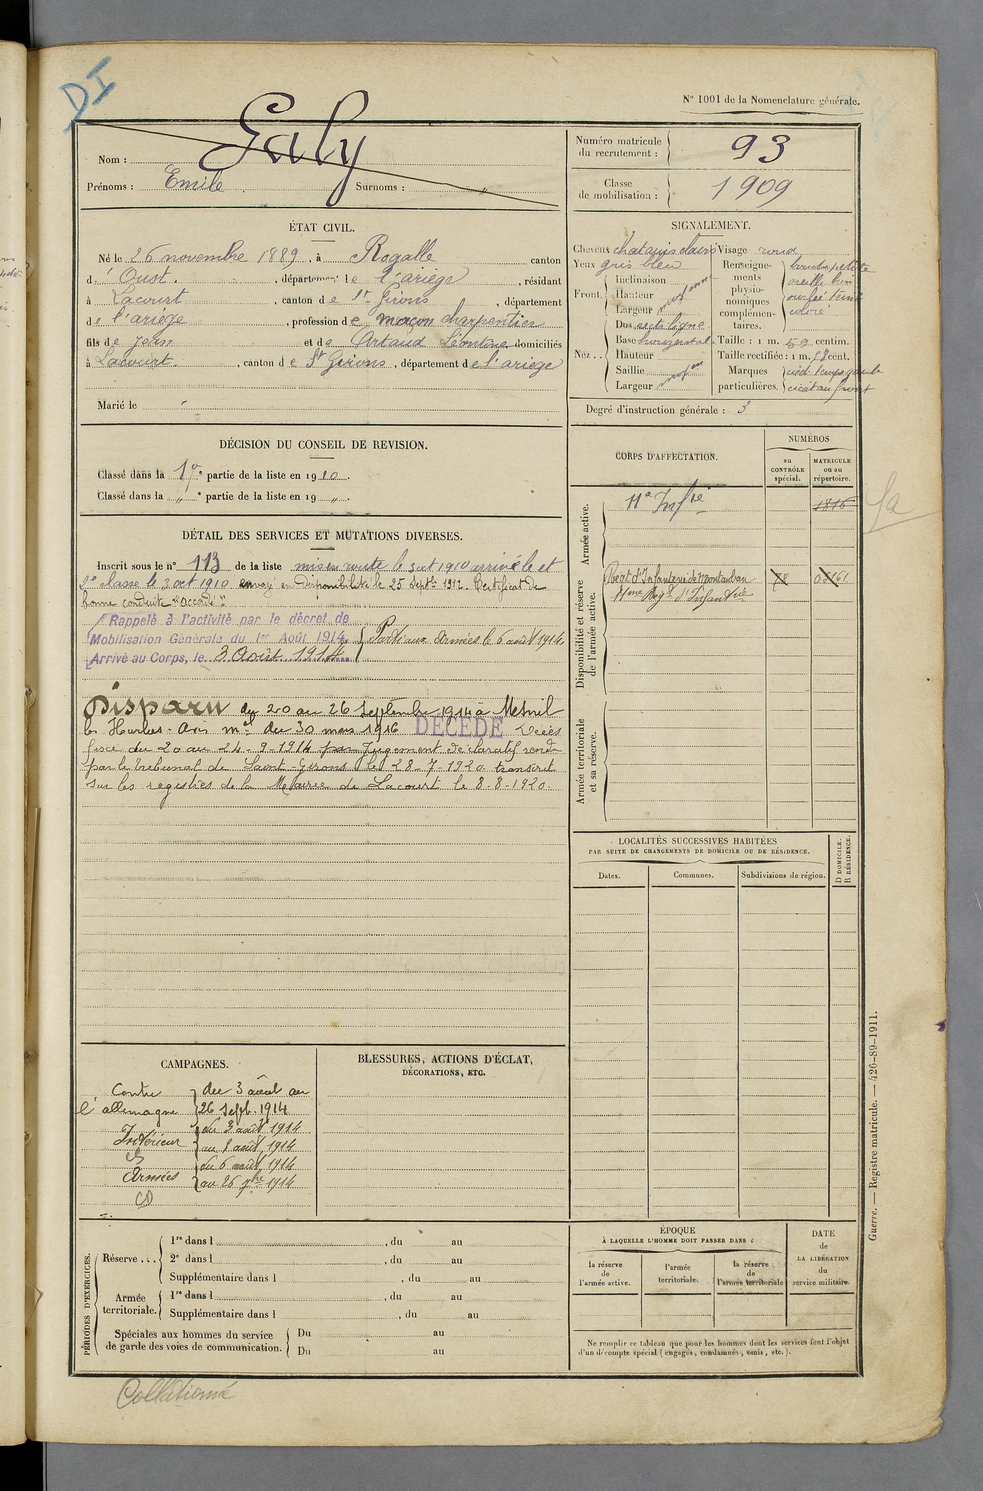 DI
N° 1001 de la Nomenclature générale.
Nom : Galy
Prénoms : Emile Surnoms : "
Numéro matricule du recrutement : 93
Classe de mobilisation : 1909
ÉTAT CIVIL.
Né le 26 novembre 1889, à Rogalle canton
d' Oust. , département de l'ariège , résidant
à Lacourt , canton de St Girons , département
de l'ariège , profession de maçon charpentier
fils de Jean et de Artaud Léontine domiciliés
à Lacourt. , canton de St Girons , département de l'ariège
Marié le
SIGNALEMENT.
Cheveux chatains clairs Visage rond
Yeux gris bleu
Front. Inclinaison
Hauteur moyenne
Largeur
Nez. . Dos rectiligne
Base horizontale
Hauteur
Saillie moyen
Largeur
Renseignements physionomiques complémentaires.
bouche petite
coloré
Taille : 1 m. 59 centim.
Taille rectifiée : 1 m. cent.
Marques particulières.
cicat au front
Degré d'instruction générale : 3
DÉCISION DU CONSEIL DE REVISION.
Classé dans la 1re partie de la liste en 1910.
Classé dans la " e partie de la liste en 19 ".
DÉTAIL DES SERVICES ET MUTATIONS DIVERSES.
Inscrit sous le n° 113 de la liste mis en route le 3 oct 1910 arrivé le et
2e classe le 3 oct 1910 envoyé en disponibilité le 25 septe 1912. Certificat de
bonne conduite "accordé".
Rappelé à l'activité par le décret de
Mobilisation Générale du 1er Août 1914
Arrivé au Corps, le 3 Août 1914
Parti aux Armées le 6 août 1914.
Disparu du 20 au 26 Septembre 1914 à Mesnil
les Hurlus. Avis mel du 30 mars 1916 DÉCÉDÉ Décès
fixé du 20 au 24-9-1914 par Jugement déclaratif rendu
par le tribunal de Saint-Girons le 28-7-1920 transcrit
sur les registres de la Mairie de Lacourt le 8-8-1920.
CORPS D'AFFECTATION.
NUMÉROS
au CONTRÔLE spécial.
MATRICULE ou au répertoire.
Armée active.
11e Infie 1816
fa
Disponibilité et réserve de l'armée active.
Regt d'Infanterie de Montauban
11eme Regt d'Infanterie
Armée territoriale et sa réserve.
LOCALITÉS SUCCESSIVES HABITÉES
PAR SUITE DE CHANGEMENTS DE DOMICILE OU DE RÉSIDENCE.
Dates. Communes. Subdivisions de région. D DOMICILE. R RÉSIDENCE.
CAMPAGNES.
Contre l'allemagne du 3 août au
26 Sept. 1914
Intérieur du 3 août 1914
CS au 5 août 1914
Armées du 6 août 1914
CD au 26 7bre 1914
BLESSURES, ACTIONS D'ÉCLAT,
DÉCORATIONS, ETC.
PÉRIODES D'EXERCICES.
Réserve . . . 1re dans l , du au
2e dans l , du au
Supplémentaire dans l , du au
Armée territoriale. 1re dans l , du au
Supplémentaire dans l , du au
Spéciales aux hommes du service de garde des voies de communication. Du au
Du au
ÉPOQUE
À LAQUELLE L'HOMME DOIT PASSER DANS :
la réserve de l'armée active.
l'armée territoriale.
la réserve de l'armée territoriale
DATE de LA LIBÉRATION du service militaire.
Ne remplir ce tableau que pour les hommes dont les services font l'objet
d'un décompte spécial (engagés, condamnés, omis, etc.).
Guerre. — Registre matricule. — 426-89-1911.
Collationné